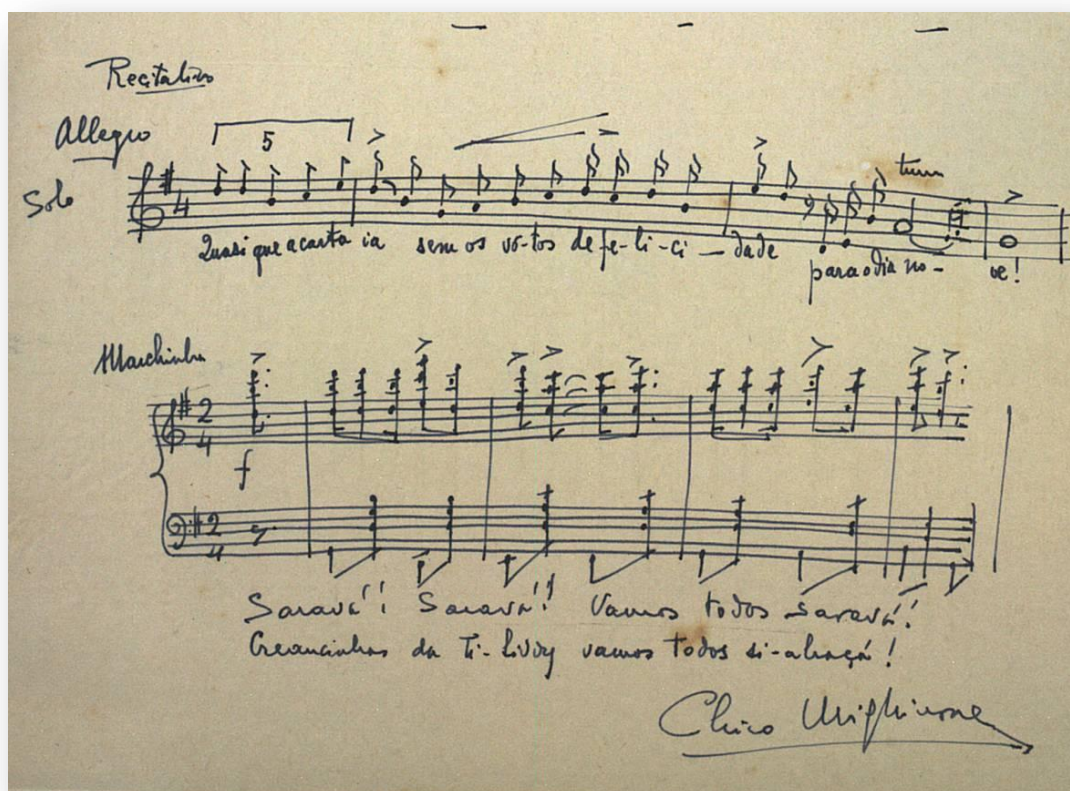 Recitativo
Allegro
5
Solo
4
tum
Quasi que a carta ia sem os vo-tos de fe-li-ci-dade para o dia no-ve!
Marchinha
2 4
f
2 4
Saravá!! Saravá!! Vamos todos saravá!!
Creancinhas da Ti-LivVy vamos todos si-abraçá!
Chico Mighinone